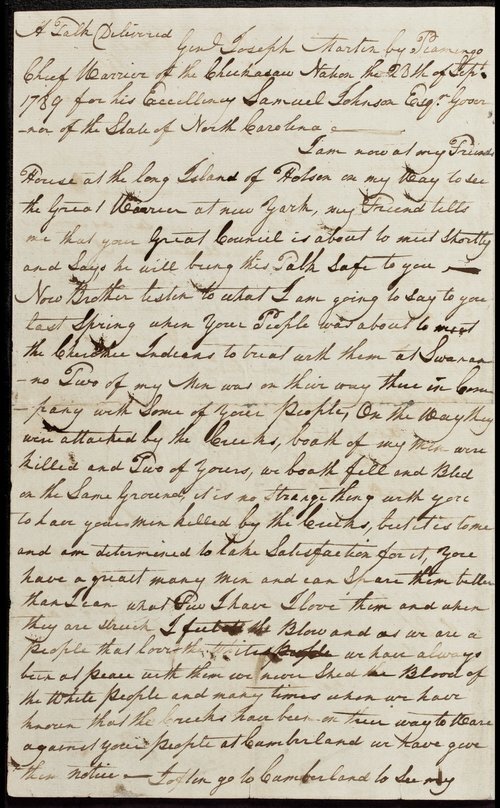 A Talk Delivered Genl. Joseph Martin by Piamingo
Chief Warrier of the Chickasaw Nation the 28th of Sept.
1789 for his Excellency Samuel Johnson Esqr. Gover
-nor of the State of North Carolina
I am now at my Friends
House at the long Island of Holson on my Way to see
the Great Warrier at new York, my Friend tells
me that your Great Council is about to meet Shortly
and Says he will bring this Talk Safe to you
Now Brother listen to what I am going to say to you
last Spring when Your People was about to meet
the Cherokee Indians to treat with them at Swanan
-no Two of my Men was on their way there in Com
-pany with Some of Your People, On the Way they
were attacked by the Creeks, boath of my Men were
killed and Two of Yours, we boath fell and Bled
on the Same Ground, it is no Strange thing with you
to have your men killed by the Creeks, but it is to me
and am determined to take Satisfaction for it, You
have a great many Men and can Spare them better
than I can what Few I have I love them and when
they are Struck I feel the Blow and as we are a
People that love the White People we have always
been at peace with them we never Shed the Blood of
the White People and many times when we have
known that the Creeks have been on their way to Warr
against your People at Cumberland we have give
them notice I often go to Cumberland to see my